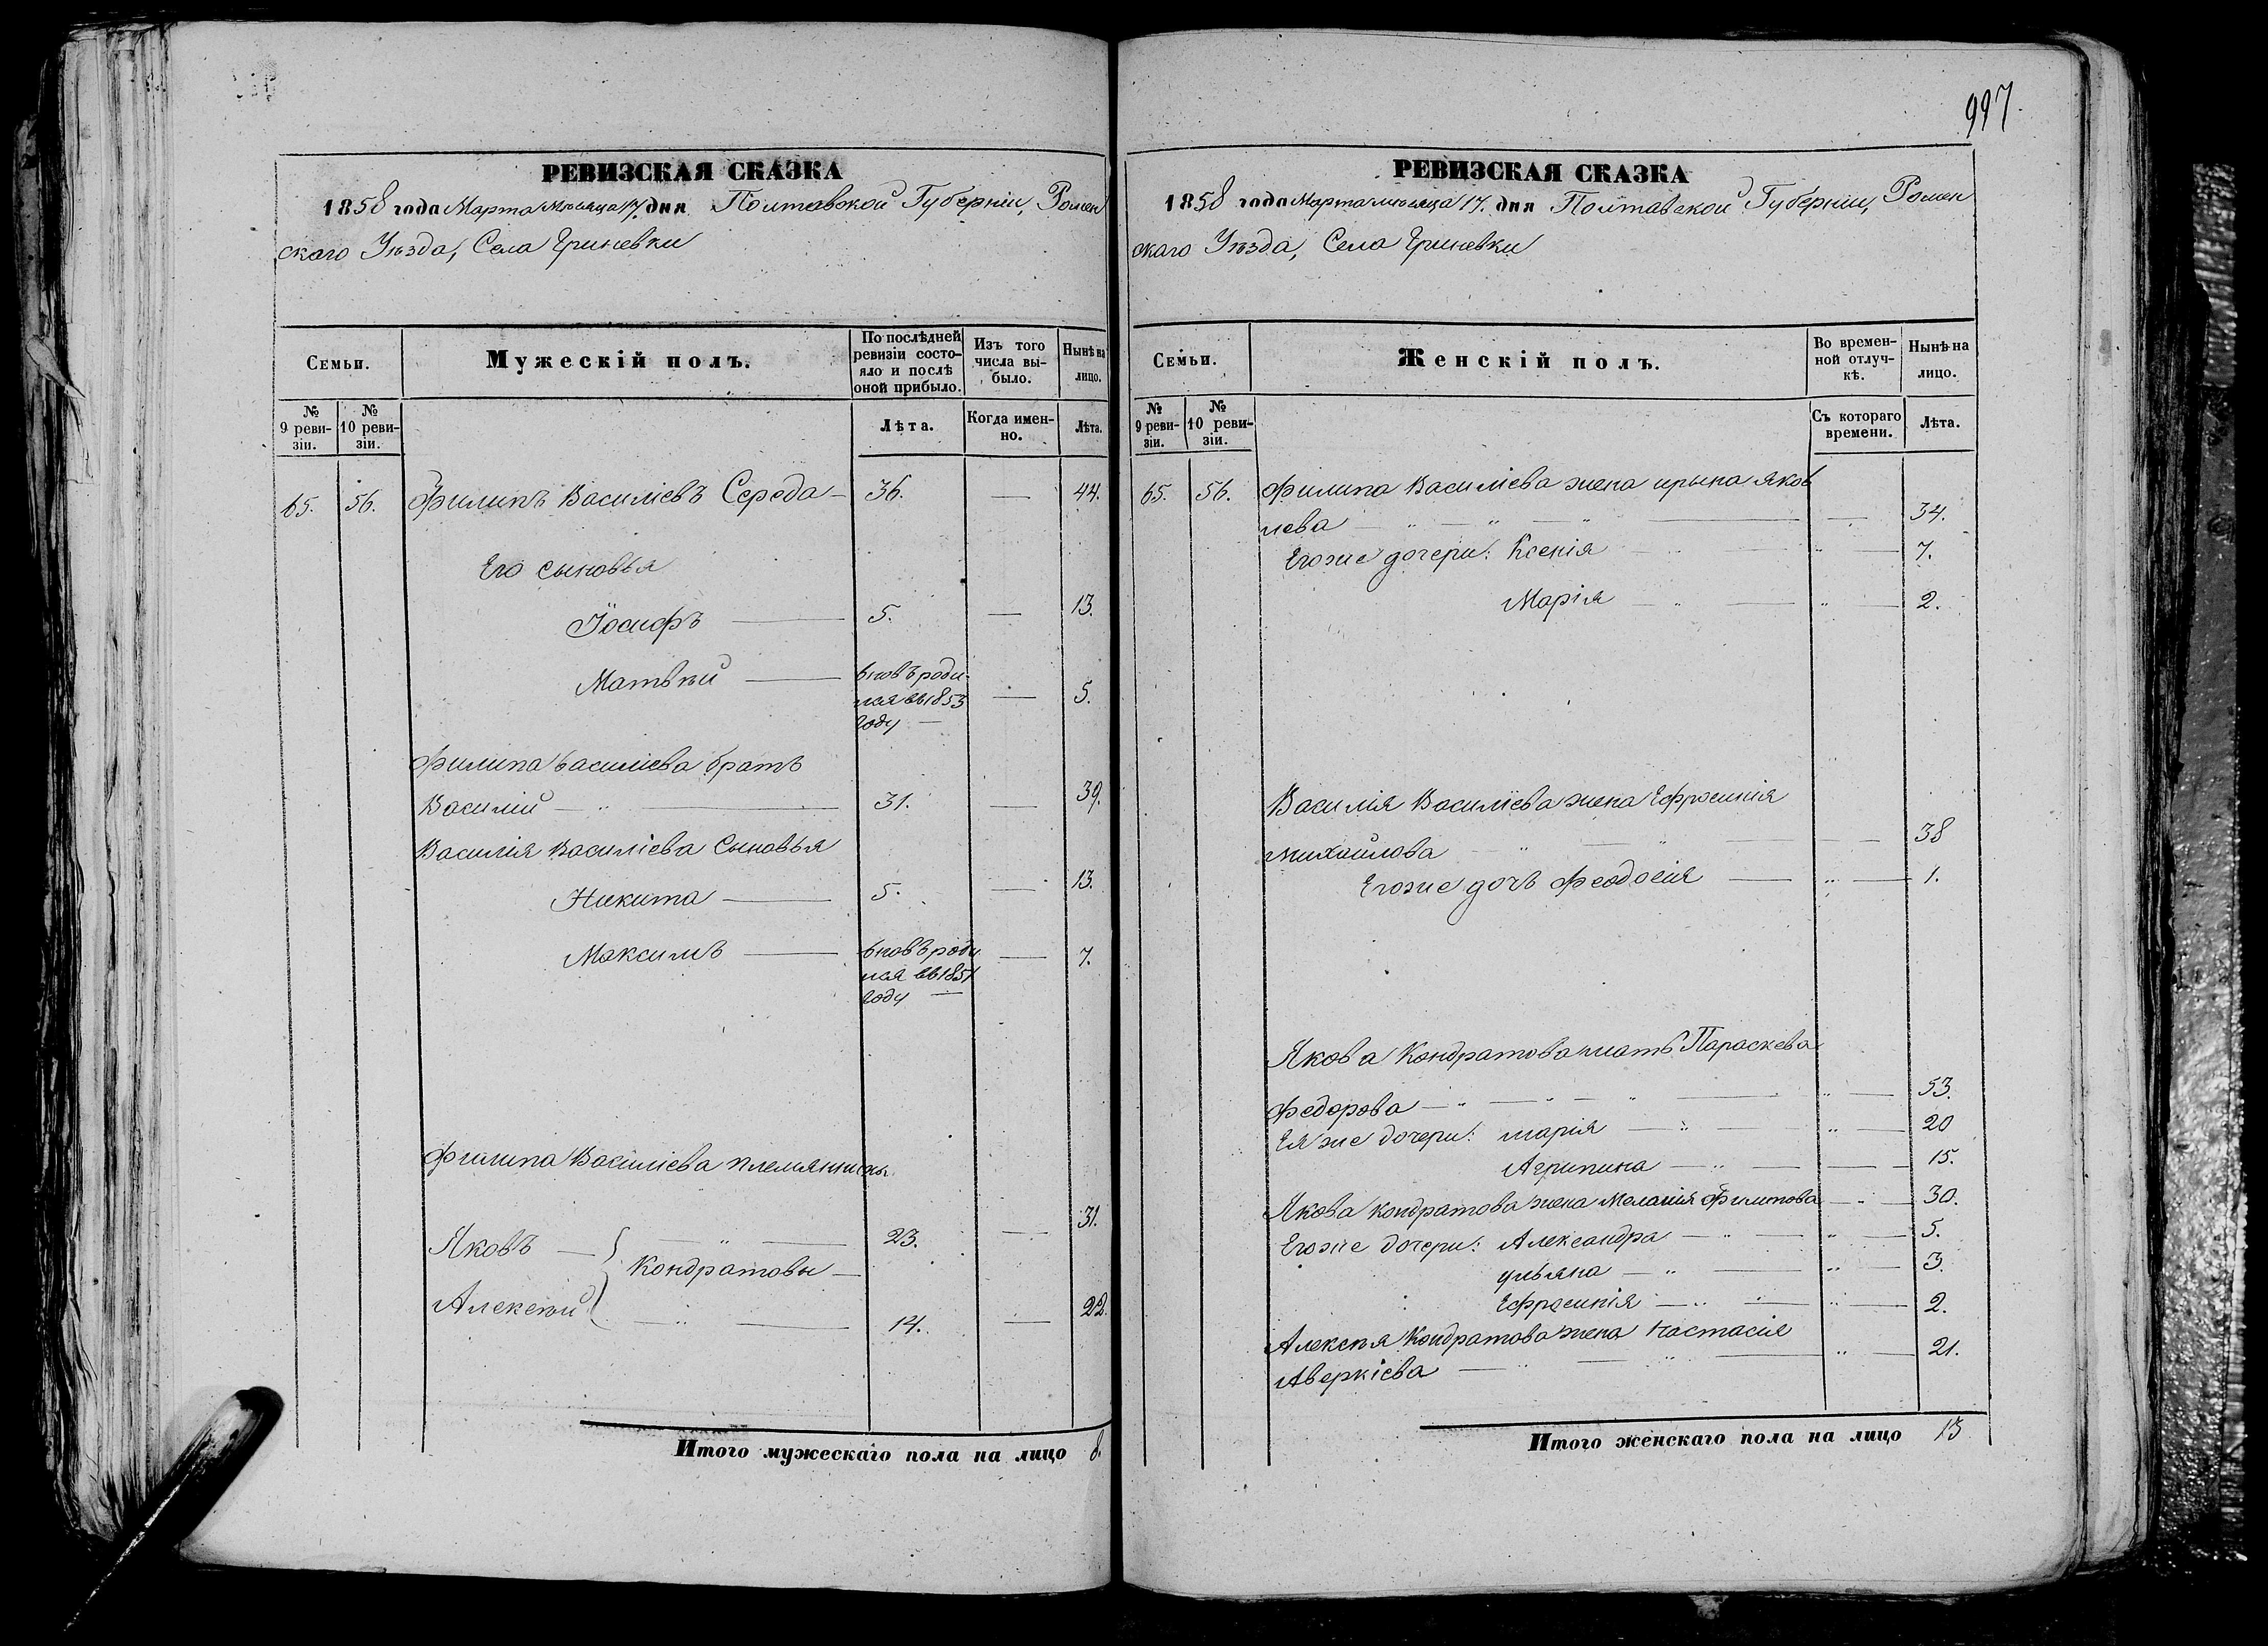 997.
РЕВИЗСКАЯ СКАЗКА
1858 года Марта мѣсяца 17. дня Полтавской Губерніи, Ромен
скаго Уѣзда, Села Гриневки
Семьи.
Мужескій полъ.
По послѣдней ревизіи состояло и послѣ оной прибыло.
Изъ того числа выбыло.
Нынѣ на лицо.
№ 9 ревизіи.
№ 10 ревизіи.
Лѣта.
Когда именно.
Лѣта.
65. 56. Филипъ Василіевъ Середа — 36. — 44.
Его сыновья
Іосифъ — 5. — 13.
Матвѣй — вновь роди
лся въ 1853
году — — 5.
Филипа Василіева братъ
Василій — 31. — 39.
Василія Василіева Сыновья
Никита — 5. — 13.
Максимъ — вновь роди
лся въ 1851
году — — 7.
Филипа Василіева племянники
Яковъ — 23. — 31.
Кондратовы —
Алексѣй — 14. — 22.
Итого мужескаго пола на лицо 8.
РЕВИЗСКАЯ СКАЗКА
1858 года Марта мѣсяца 17. дня Полтавской Губерніи, Ромен
скаго Уѣзда, Села Гриневки
Семьи.
Женскій полъ.
Во временной отлучкѣ.
Нынѣ на лицо.
№ 9 ревизіи.
№ 10 ревизіи.
Съ котораго времени.
Лѣта.
65. 56. Филипа Василіева жена ирына яков
лева — 34.
Егоже дочери: Ксенія — 7.
Марія — 2.
Василія Василіева жена Ефросинія
михайлова — 38
Егоже дочь Феодосія — 1.
Якова Кондратова мать Параскева
Федорова — 53.
Ея же дочери: марія — 20
Агрипина — 15.
Якова Кондратова жена Меланія Филипова — 30.
Егоже дочери: Александра — 5.
ульяна — 3.
Ефросинія — 2.
Алексѣя Кондратова жена Настасія
Аверкіева — 21.
Итого женскаго пола на лицо 13